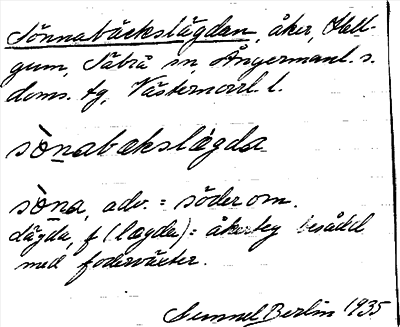 Sönnabäckslägdan, åker, Häll-
gum, Säbrå sn, Ångermanl. s.
doms. tg, Västernorrl. l.
sònabækslǻgda
sòna, adv. = söder om.
Lägda, f (lægda) = åkerteg besådd
med foderväxter.
Sunnel Berlin 1935